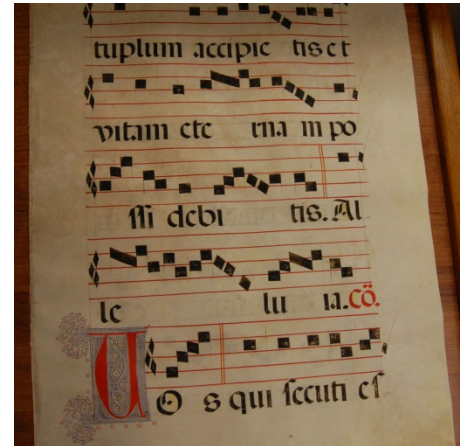 tuplum accipie tis et
vitam ete rna m po
ssi debi tis. Al
le lu ia. Cō.
UO s qui secuti es